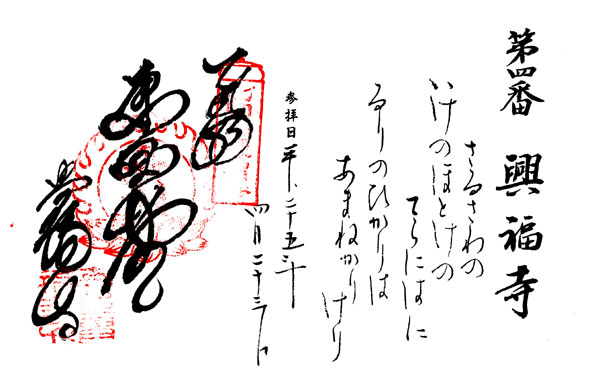 第四番 興福寺
さるさわの
いけのほとけの
てらにはに
るりのひかりは
あまねかりけり
参拝日 平、二十五年
四月二十三日
奉拝
東金堂
興福寺